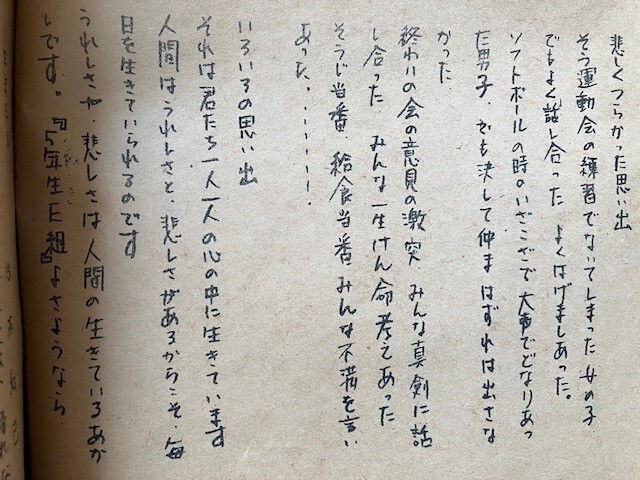 悲しくつらかった思い出
そう運動会の練習でないてしまった女の子
でもよく話し合った よくはげましあった。
ソフトボールの時のいざこざで大声でどなりあっ
た男子、でも決して仲まはずれは出さな
かった
終わりの会の意見の激突 みんな真剣に話
し合った みんな一生けん命考えあった
そうじ当番、給食当番 みんな不満を言い
あった。・・・・・・。
いろいろの思い出
それは君たち一人一人の心の中に生きています
人間はうれしさと、悲しさがあるからこそ、毎
日を生きていられるのです
うれしさや、悲しさは人間の生きているあか
しです。『5年生に組』よさようなら